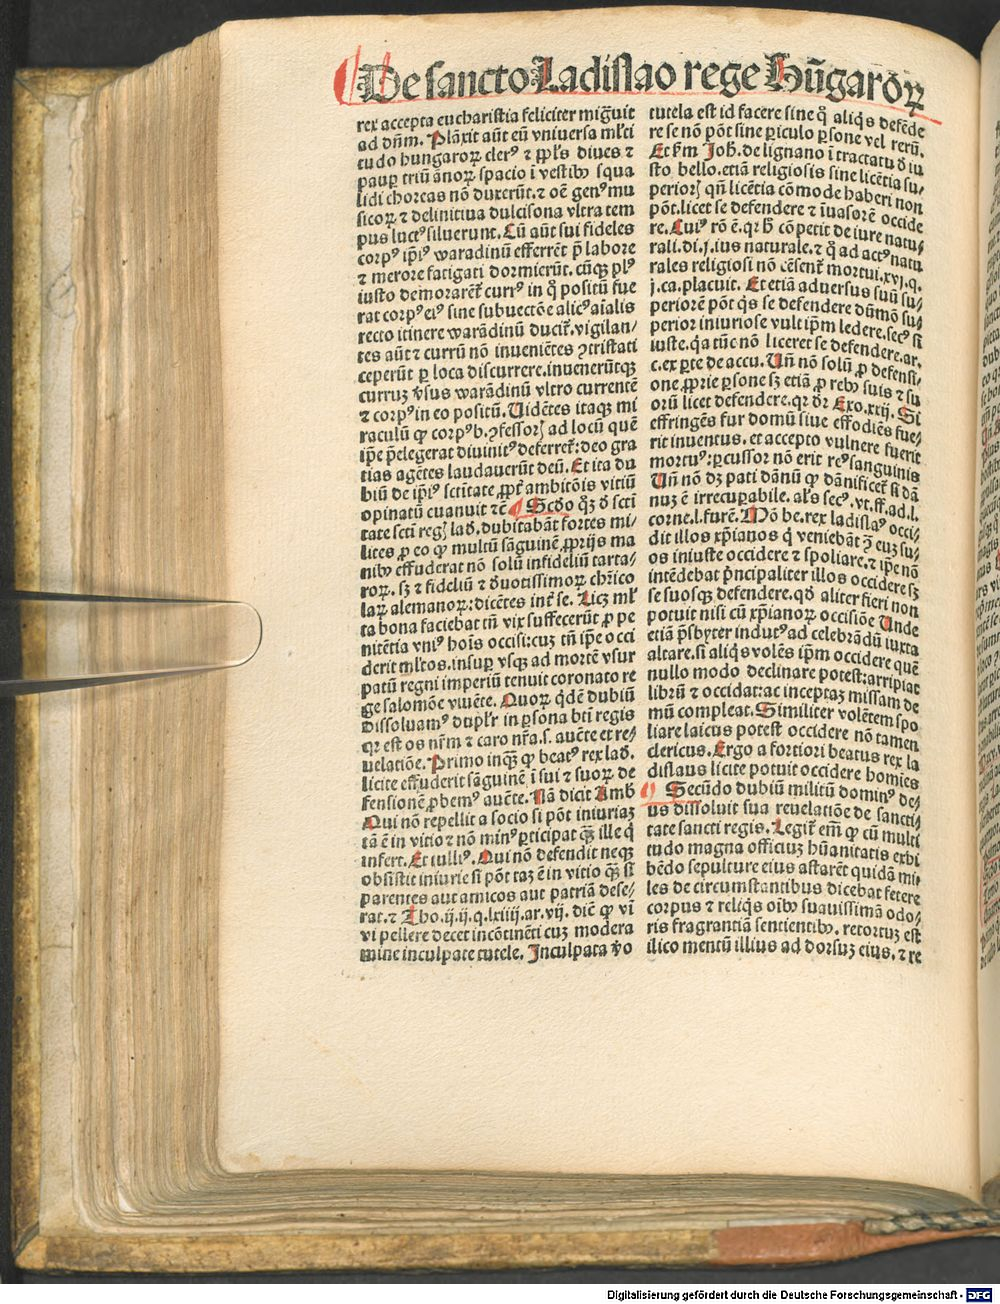 De sancto Ladislao rege Hūgaroꝝ
rex accepta eucharistia feliciter migͣuit
ad dn̄m. Plāxit aūt eū vniuersa ml̓ti
tudo hungaroꝝ clerꝰ ⁊ ppl̓s diues ⁊
pauꝑ triū ānoꝝ spacio ī vestibꝰ squa
lidi choreas nō duxerūt. ⁊ oē genꝰ mu
sicoꝝ ⁊ delinitiua dulcisona vltra tem
pus luctꝰ siluerunt. Cū aūt sui fideles
corpꝰ ip̄iꝰ waradinū efferrēt p̄ labore
⁊ merore fatigati dormierūt. cūqꝫ plꝰ
iusto demorarēt̉ currꝰ in q̊ positū fue
rat corpꝰ eiꝰ sine subuectōe alicꝰ aīalis
recto itinere warādinū ducit̉. vigilan/
tes aūt ⁊ currū nō inueniētes ꝯtristati
ceperūt ꝑ loca discurrere. inuenerūtqꝫ
curruꝫ v̓sus waradinū vltro currentē
⁊ corpꝰ in eo positū. Uidētes itaqꝫ mi
raculū ꝙ corpꝰ b. ꝯfessorꝭ ad locū quē
ip̄e p̄elegerat diuinitꝰ deferret̉: deo gra
tias agētes laudauerūt deū. Et ita du
biū de ip̄iꝰ sctītate ꝓpt̉ ambitōis vitiū
opinatū euanuit ⁊cē ¶ Scd̓o q̄ꝫ d̓ scti
tate scti regꝭ lad. dubitabāt fortes mi/
lites ꝓ eo ꝙ multū sāguinē ꝓprijs ma
nibꝰ effuderat nō solū infideliū tarta/
roꝝ. sꝫ ⁊ fideliū ⁊ d̓uotissimoꝝ chr̄ico
laꝝ alemanoꝝ: dicētes int̉ se. Licꝫ ml̓
ta bona faciebat tn̄ vix suffecerūt ꝓ pe
nitētia vniꝰ hoīs occisi: cuꝫ tn̄ ip̄e occi
derit ml̓tos. insuꝑ vsqꝫ ad mortē vsur
patū regni imperiū tenuit coronato re
ge salomōe viuēte. Quoꝝ q̓dē dubiū
dissoluamꝰ dupl̓r in ꝑsona bt̄i regis
qꝛ est os nr̄m ⁊ caro nr̄a. s. auēte et re/
uelatiōe. Primo inqͣꝫ ꝙ beatꝰ rex lad.
licite effuderit sāguinē ī sui ⁊ suoꝝ de
fensionē ꝓbemꝰ auēte. Nā dicit Amb
Qui nō repellit a socio si pōt iniuriaꝫ
tā ē in vitio ⁊ nō minꝰ ꝑticipat qͣꝫ ille q̓
infert. Et tulliꝰ. Qui nō defendit neqꝫ
obsistit iniurie si pōt taꝫ ē in vitio qͣꝫ si
parentes aut amicos aut patriā dese/
rat. ⁊ Tho. ij. ij. q. lxiiij. ar. vij. dic̄ ꝙ vī
vi pellere decet incōtinēti cuꝫ modera
mine inculpate tutele. Inculpata v̓o
tutela est id facere sine q̄ aliqͥs defēde
re se nō pōt sine ꝑiculo ꝑsone vel rerū.
Et ẜm Joh. de lignano ī tractatu d̓ iu
sto bello. etiā religiosis sine licētia su/
periorꝭ qn̄ licētia cōmode haberi non
pōt. licet se defendere ⁊ īuasorē occide
re. Cuiꝰ rō ē. qꝛ h̄ cōpetit de iure natu/
rali. di. j. ius naturale. ⁊ q̄ ad actꝰ natu
rales religiosi nō cēsent̉ mortui. xvj. q.
j. ca. placuit. Et etiā aduersus suū su/
periorē pōt qͥs se defendere dūmō su/
perior iniuriose vult ip̄m ledere. secꝰ si
iuste. q̓a tūc nō liceret se defendere. ar.
c. ex ꝑte de accu. Un̄ nō solū ꝓ defensi/
one ꝓprie ꝑsone sꝫ etiā ꝓ rebꝰ suis ⁊ su
orū licet defendere. qꝛ dr̄ Exo. xxij. Si
effringēs fur domū siue effodiēs fue/
rit inuentus. et accepto vulnere fuerit
mortuꝰ: ꝑcussor nō erit reꝰ sanguinis
Un̄ nō dꝫ pati dānū ꝙ dānificet̉ si dā
nuꝫ ē irrecuꝑabile. al̓s secꝰ. vt. ff. ad. l.
corne. l. furē. Mō be. rex ladislaꝰ occi/
dit illos xp̄ianos q̓ veniebāt ꝯ̄ euꝫ su/
os iniuste occidere ⁊ spoliare. ⁊ ip̄e nō
intēdebat p̓ncipaliter illos occidere sꝫ
se suosqꝫ defendere. qd̓ aliter fieri non
potuit nisi cū xp̄ianoꝝ occisiōe Unde
etiā p̄sbyter indutꝰ ad celebrādū iuxta
altare. si aliqͥs volēs ip̄m occidere quē
nullo modo declinare potest: arripiat
librū ⁊ occidat: ac inceptaꝫ missam de
mū compleat. Similiter volētem spo
liare laicus potest occidere nō tamen
clericus. Ergo a fortiori beatus rex la
dislaus licite potuit occidere homīes
¶ Secūdo dubiū militū dominꝰ de/
us dissoluit sua reuelatiōe de sancti/
tate sancti regis. Legit̉ em̄ ꝙ cū multi
tudo magna officiuꝫ hūanitatis exhi
bēdo sepulture eius astarēt quidā mi/
les de circumstantibus dicebat fetere
corpus ⁊ reliqͥs oībꝰ suauissimā odo/
ris fragrantiā sentientibꝰ. retortuꝫ est
ilico mentū illius ad dorsuꝫ eius. ⁊ re
Digitalisierung gefördert durch die Deutsche Forschungsgemeinschaft - DFG